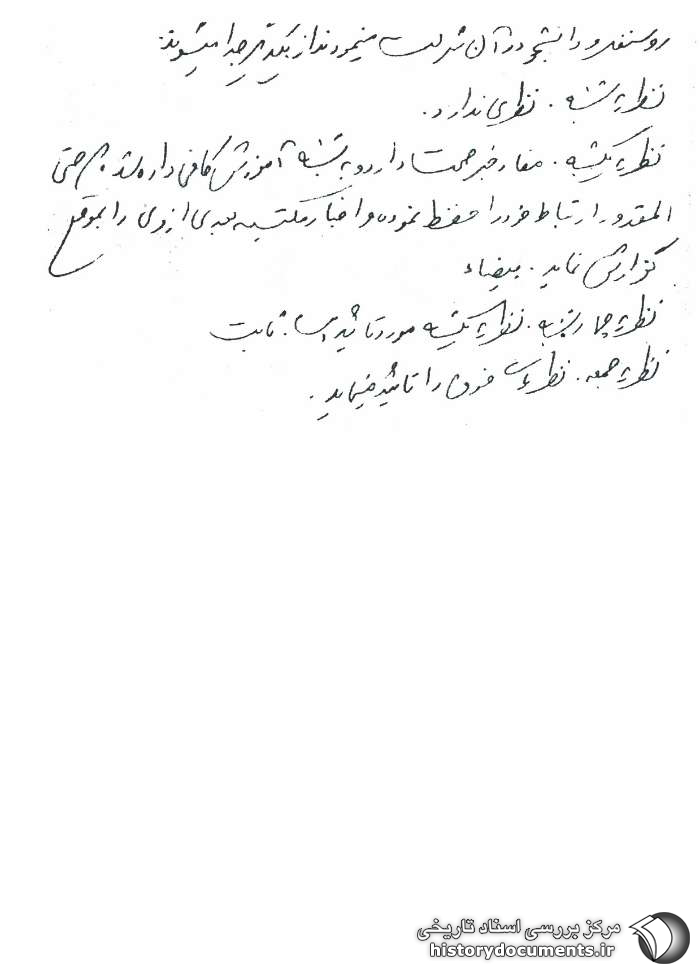 روشنفکر و دانشجو در آن شرکت مینمودند از یکدیگر جدا میشوند.
نظریه شنبه . نظری ندارد .
نظریه یکشنبه . مفاد خبر صحت دارد و به شنبه آموزش کافی داده شد که حتی
المقدور ارتباط خود را حفظ نموده و اخبار مکتسبه بعدی از وی را بموقع
گزارش نماید . بیضاء
نظریه چهارشنبه . نظریه یکشنبه مورد تائید است . ثابت
نظریه جمعه . نظریه فوق را تائید مینماید .
مرکز بررسی اسناد تاریخی
historydocuments.ir